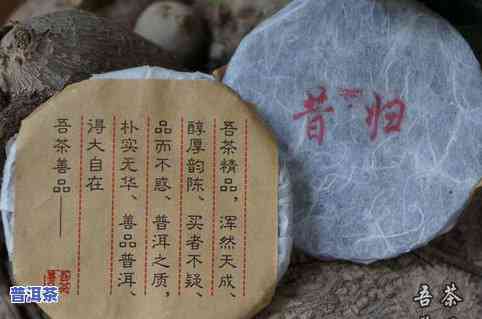 吾茶精品，浑然天成、
醇厚韵陈、买者不疑、
品而不惑、普洱之质，
朴实无华、善品普洱、
得大自在
吾茶善品——
昔归
普洱茶
吾茶